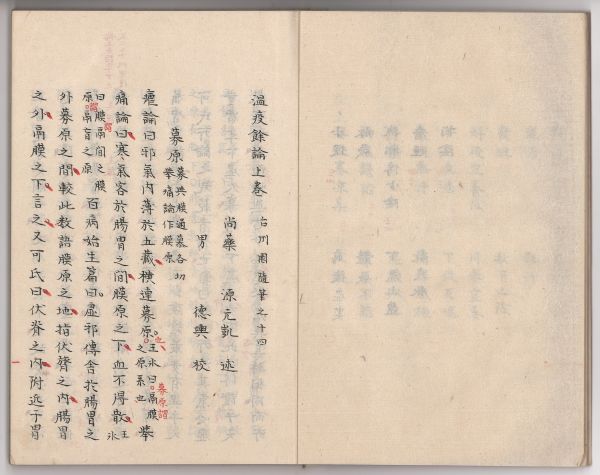 溫疫餘論上卷 古州園隨筆之十四
尚藥 源元凱 述
男 德輿 校
募原 募與膜通募各切
擧痛論作膜原
瘧論曰邪氣內薄於五藏橫連募原 王氷曰鬲膜之原系也 募原謂 擧
痛論曰寒氣客於腸胃之間膜原之下血不得散 王氷
曰膜鬲間之膜
原鬲肓之原 百病始生篇曰虛邪傳舍於腸胃之
外募原之間較此數語膜原之地指伏膂之內腸胃
之外鬲膜之下言之又可氏曰伏脊之內附近于胃